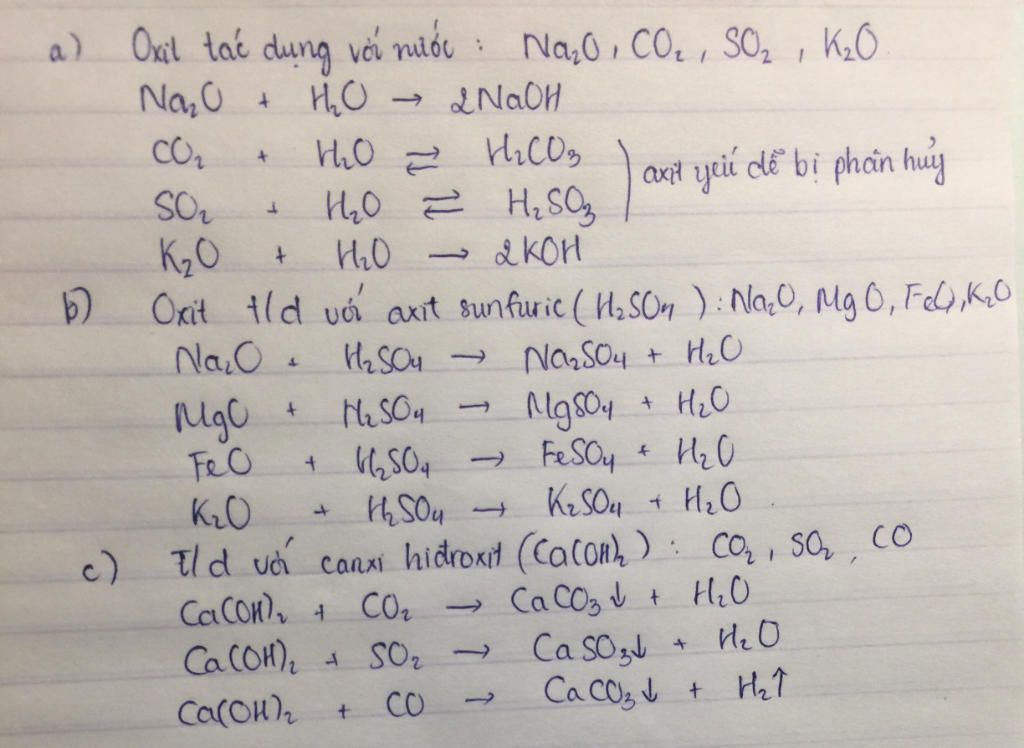 a) Oxit tác dụng với nước : Na₂O, CO₂, SO₂, K₂O
Na₂O + H₂O → 2NaOH
CO₂ + H₂O ⇌ H₂CO₃
SO₂ + H₂O ⇌ H₂SO₃ } axit yếu dễ bị phân hủy
K₂O + H₂O → 2KOH
b) Oxit t/d với axit sunfuric (H₂SO₄) : Na₂O, MgO, FeO, K₂O
Na₂O + H₂SO₄ → Na₂SO₄ + H₂O
MgO + H₂SO₄ → MgSO₄ + H₂O
FeO + H₂SO₄ → FeSO₄ + H₂O
K₂O + H₂SO₄ → K₂SO₄ + H₂O
c) t/d với canxi hiđroxit (Ca(OH)₂) : CO₂, SO₂, CO
Ca(OH)₂ + CO₂ → CaCO₃↓ + H₂O
Ca(OH)₂ + SO₂ → CaSO₃↓ + H₂O
Ca(OH)₂ + CO → CaCO₃↓ + H₂↑